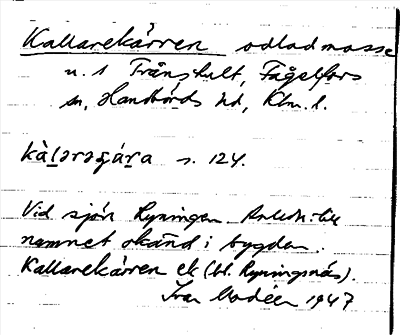 Kallarekärren odlad mosse
u. 1 Trånshult, Fågelfors
sn, Handbörds hd, Klm. l.
s. 124.
Vid sjön Ryningen. Anledn. till
namnet okänd i bygden.
Kallarekärren ek (bl. Ryningsnäs).
Ivar Modéer 1947